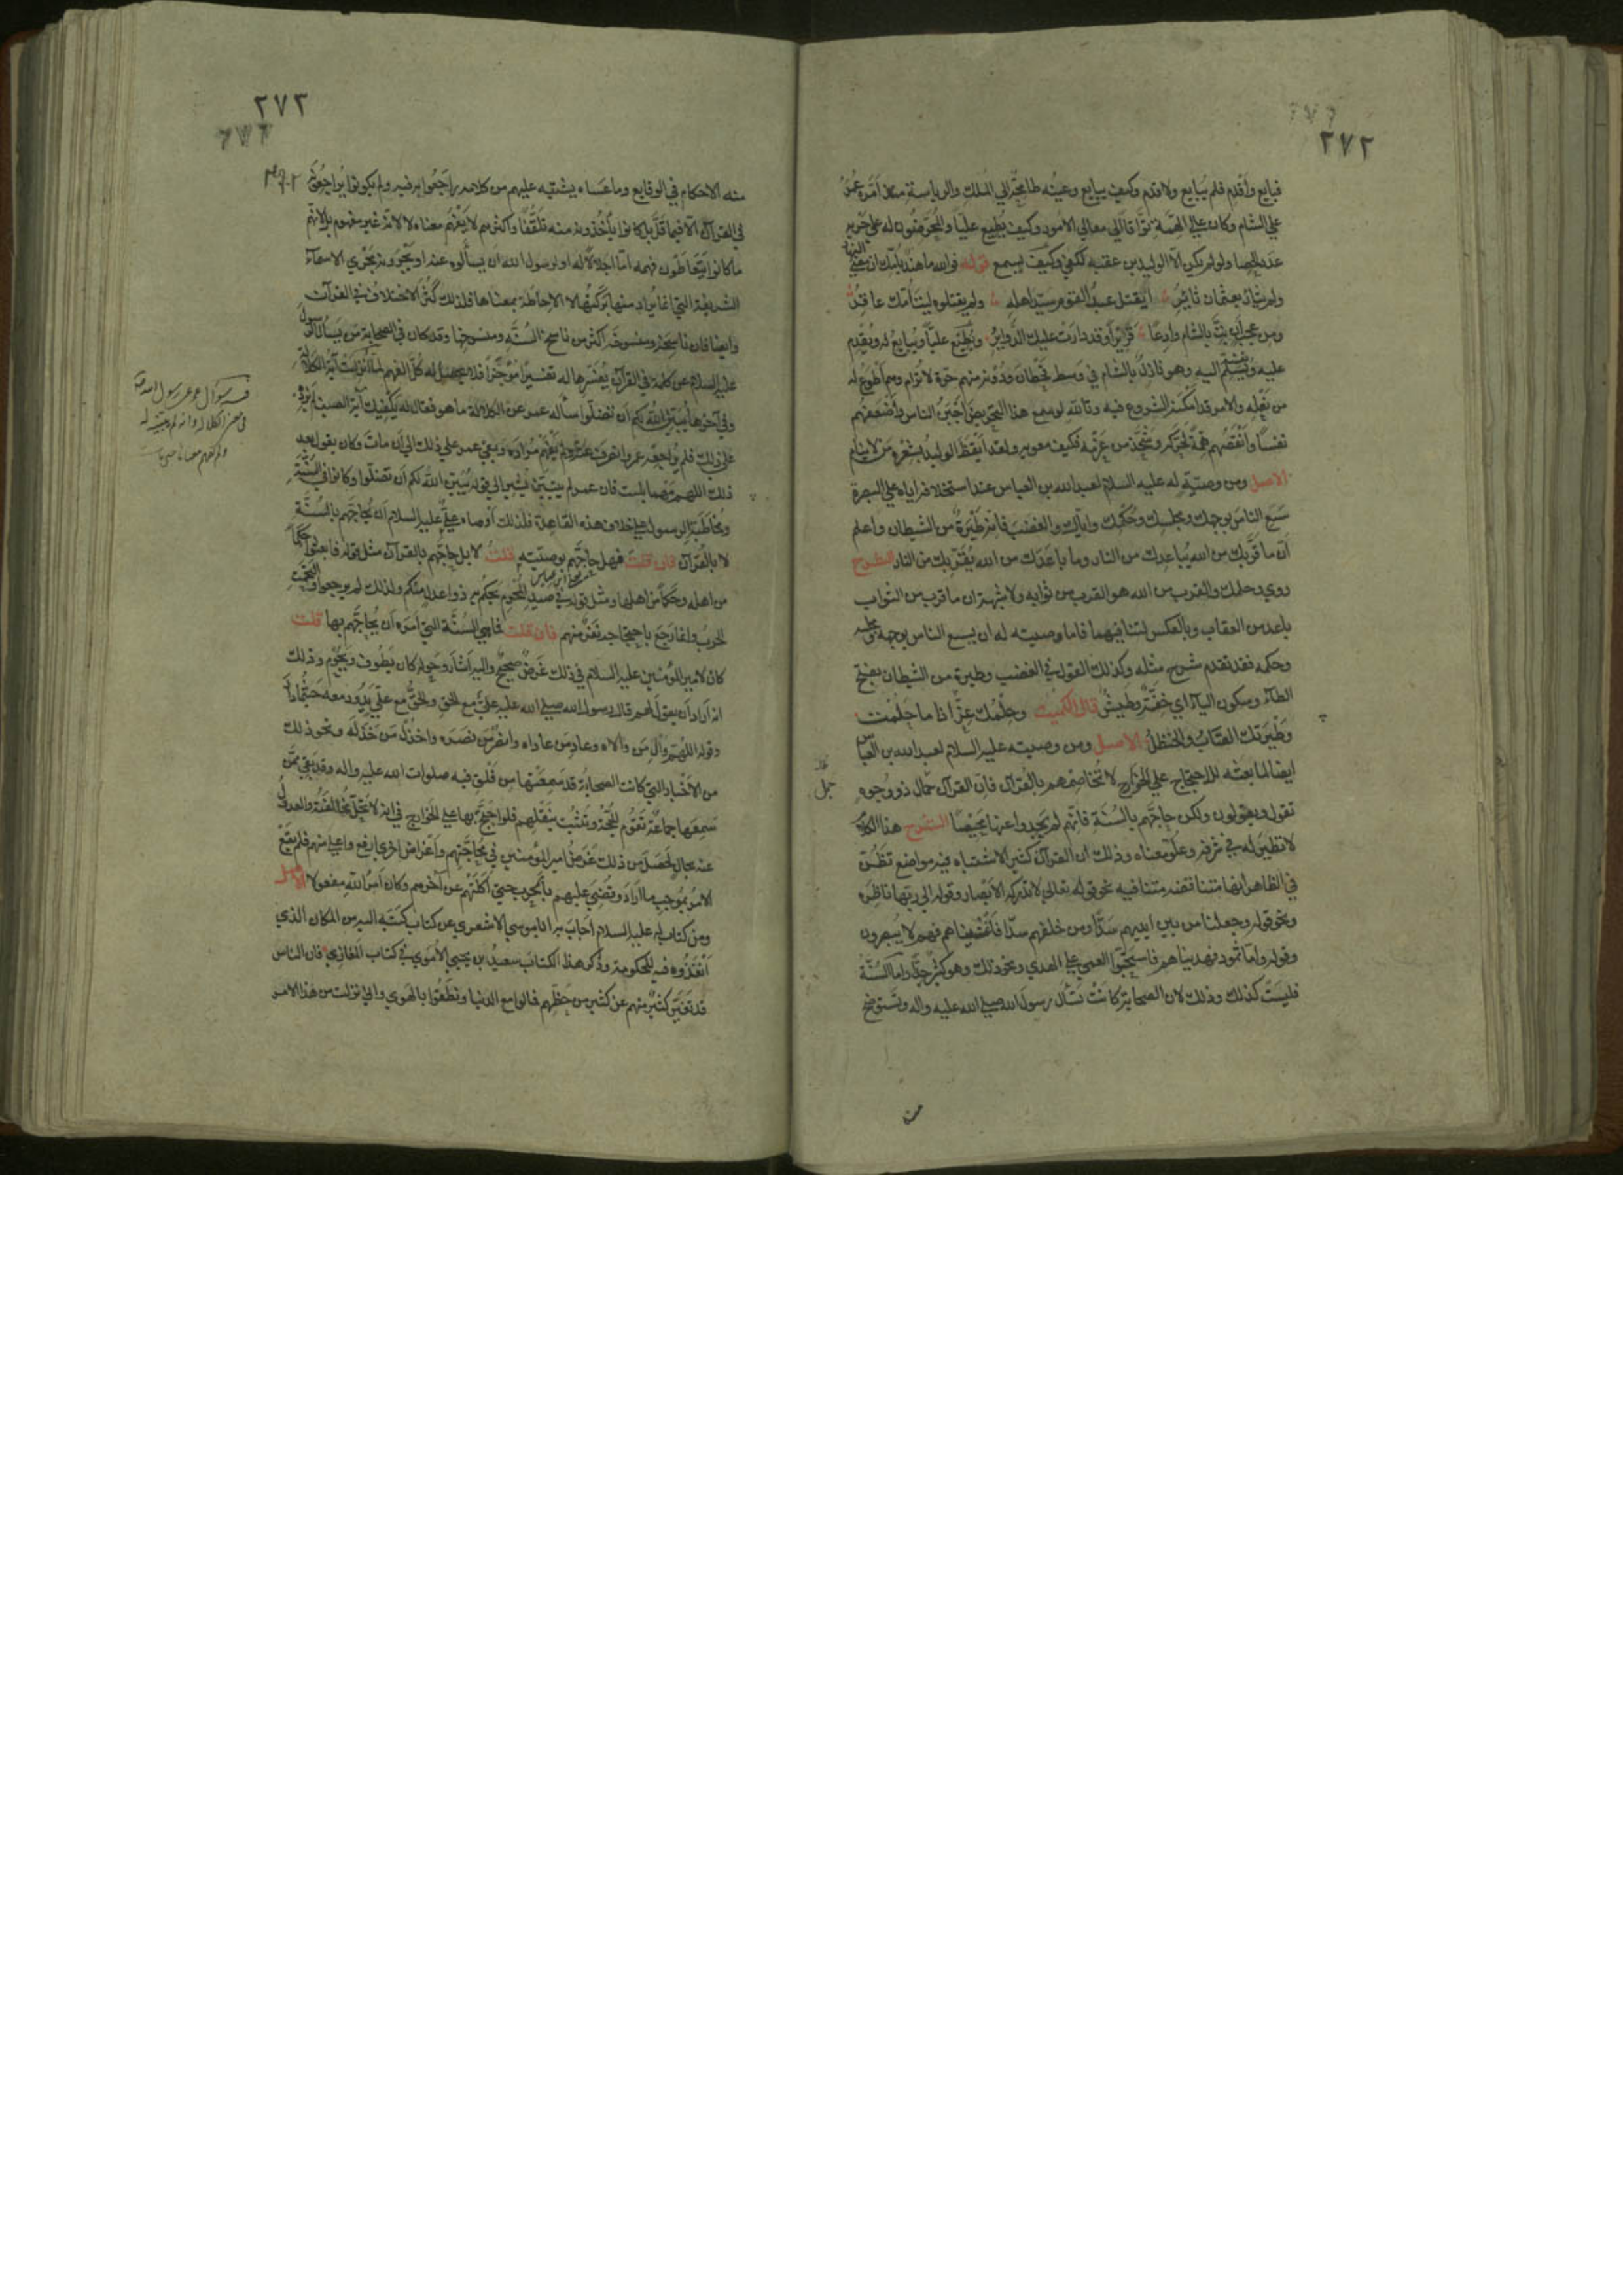 ٢٧٢
فبايع وأقدم فلم يبايع ولا قدم وكيف يبايع وعينه طامحة الي الملك والرياسة منذ أمّره عمر
علي الشام وكان عالي الهمة توّاقا الي معالي الامور وكيف يطيع عليا والمحرضون له علي حربه
عدد الحصا ولو لم يكن الا الوليد بن عقبه لكفي وكيف يسمع قوله فوالله ما هند بامك ان مضي النهار
ولم يثأر بعثمان ثائر ايقتل عبد القوم سيد اهله ولم يقتلوه ليت امك عاقر
ومن عجب أن بتّ بالشام وادعا قريرا وقد دارت عليك الدواير ويطيع عليا ويبايع له ويقدم
عليه ويسلم نفسه اليه وهو نازل بالشام في وسط قحطان ودونه منهم حرة لا ترام وهم اطوع له
من نعله والامر قد امكنه الشروع فيه وتالله لو سمع هذا التحريض اجبن الناس وأضعفهم
نفسا وأنقصهم همة لحركه وشحذ من عزمه فكيف معويه ولقد أيقظ الوليد بشعره من لا ينام
الاصل ومن وصية له عليه السلام لعبد الله بن العباس عند استخلافه اياه علي البصرة
سع الناس بوجهك ومجلسك وحكمك واياك والغضب فانه طيرة من الشيطان واعلم
أن ما قربك من الله يباعدك من النار وما باعدك من الله يقربك من النار الشرح
روي وحلمك والقرب من الله هو القرب من ثوابه ولا شبهة ان ما قرب من الثواب
باعد من العقاب وبالعكس لتنافيهما فاما وصيته له ان يسع الناس بوجهه ومجلسه
وحكمه فقد تقدم شرح مثله وكذلك القول في الغضب وطيرة من الشيطان بفتح
الطاء وسكون الياء اي خفة وطيش قال الكميت وحلمك عز اذا ما حلمت
وطيرتك الصاب والحنظل الاصل ومن وصيته عليه السلام لعبد الله بن العباس
ايضا لما بعثه للاحتجاج علي الخوارج لا تخاصمهم بالقرآن فان القرآن حمال ذو وجوه
تقول ويقولون ولكن حاجهم بالسنة فانهم لم يجدوا عنها محيصا الشرح هذا الكلام
لا نظير له في شرفه وعلو معناه وذلك ان القرآن كثير الاشتباه فيه مواضع تظن
في الظاهر أنها متناقضه متنافيه نحو قوله تعالي لا تدركه الابصار وقوله الي ربها ناظره
ونحو قوله وجعلنا من بين ايديهم سدا ومن خلفهم سدا فأغشيناهم فهم لا يبصرون
وقوله واما ثمود فهديناهم فاستحبوا العمي علي الهدي ونحو ذلك وهو كثير جدا واما السنة
فليست كذلك وذلك لان الصحابة كانت تسأل رسول الله صلي الله عليه واله وتستوضح
منه
٢٧٣
منه الاحكام في الوقايع وما عساه يشتبه عليهم من كلامه يراجعوا به فيه ولم يكونوا يراجعونه
في القرآن الا فيما قل بل كانوا يأخذونه منه تلقفا واكثرهم لا يفهم معناه لا لانه غير مفهوم بل لانهم
ما كانوا يتعاطون فهمه اما اجلالا له او لرسول الله ان يسألوه عنه او يجرونه مجري الاسماء
الشريفة التي انما يراد منها بركتها لا الاحاطة بمعناها فلذلك كثر الاختلاف في القرآن
وايضا فان ناسخه ومنسوخه اكثر من ناسخ السنة ومنسوخها وقد كان في الصحابة من يسأل الرسول
عليه السلام عن كلمة في القرآن يفسرها له تفسيرا موجزا فلا يحصل له كل الفهم لما انزلت آية الكلالة
وفي آخرها يبين الله لكم ان تضلوا سأله عمر عن الكلالة ما هو فقال له يكفيك آية الصيف لم يزد
علي ذلك فلم يراجعه عمر وانصرف عنه ولم يفهم مراده وبقي عمر علي ذلك الي أن مات وكان يقول بعد
ذلك اللهم مهما بينت فان عمر لم يتبين يشير الي قوله يبين الله لكم أن تضلوا وكانوا في السنة
ومخاطبة الرسول علي خلاف هذه القاعدة فلذلك أوصاه علي عليه السلام أن يحاجهم بالسنة
لا بالقرآن فان قلت فهل حاجهم بوصيته قلت لا بل حاجهم بالقرآن مثل قوله فابعثوا حكما
من اهله وحكما من اهلها ومثل قوله في صيد المحرم يحكم به ذوا عدل منكم ولذلك لم يرجعوا والتحمت
الحرب وانما رجع باحتجاجه نفر منهم فان قلت فما هي السنة التي امره أن يحاجهم بها قلت
كان لامير المؤمنين عليه السلام في ذلك غرض صحيح واليه اشار وحوله كان يطوف ويحوم وذلك
انه أراد أن يقول لهم قال رسول الله صلي الله عليه علي مع الحق والحق مع علي يدور معه حيثما دار
وقوله اللهم وال من والاه وعاد من عاداه وانصر من نصره واخذل من خذله ونحو ذلك
من الأخبار التي كانت الصحابة قد سمعتها من فلق فيه صلوات الله عليه واله وقد بقي ممن
سمعها جماعة تقوم الحجة وتثبت بنقلهم فلو احتج بها علي الخوارج في انه لا تحل مخالفته والعدول
عنه بحال لحصل من ذلك غرض امير المؤمنين في محاجتهم وأغراض اخري ارفع واعلي منهم فلم يقع
الامر بموجب ما اراد وقضي عليهم بالحرب حتي أكلتهم عن آخرهم وكان امر الله مفعولا الاصل
ومن كتاب له عليه السلام أجاب به ابا موسي الاشعري عن كتاب كتبه اليه من المكان الذي
أنفذوه فيه للحكومة وذكر هذا الكتاب سعيد بن يحيي الاموي في كتاب المغازي فان الناس
قد تغير كثير منهم عن كثير من حظهم فمالوا مع الدنيا ونطقوا بالهوي واني نزلت من هذا الامر